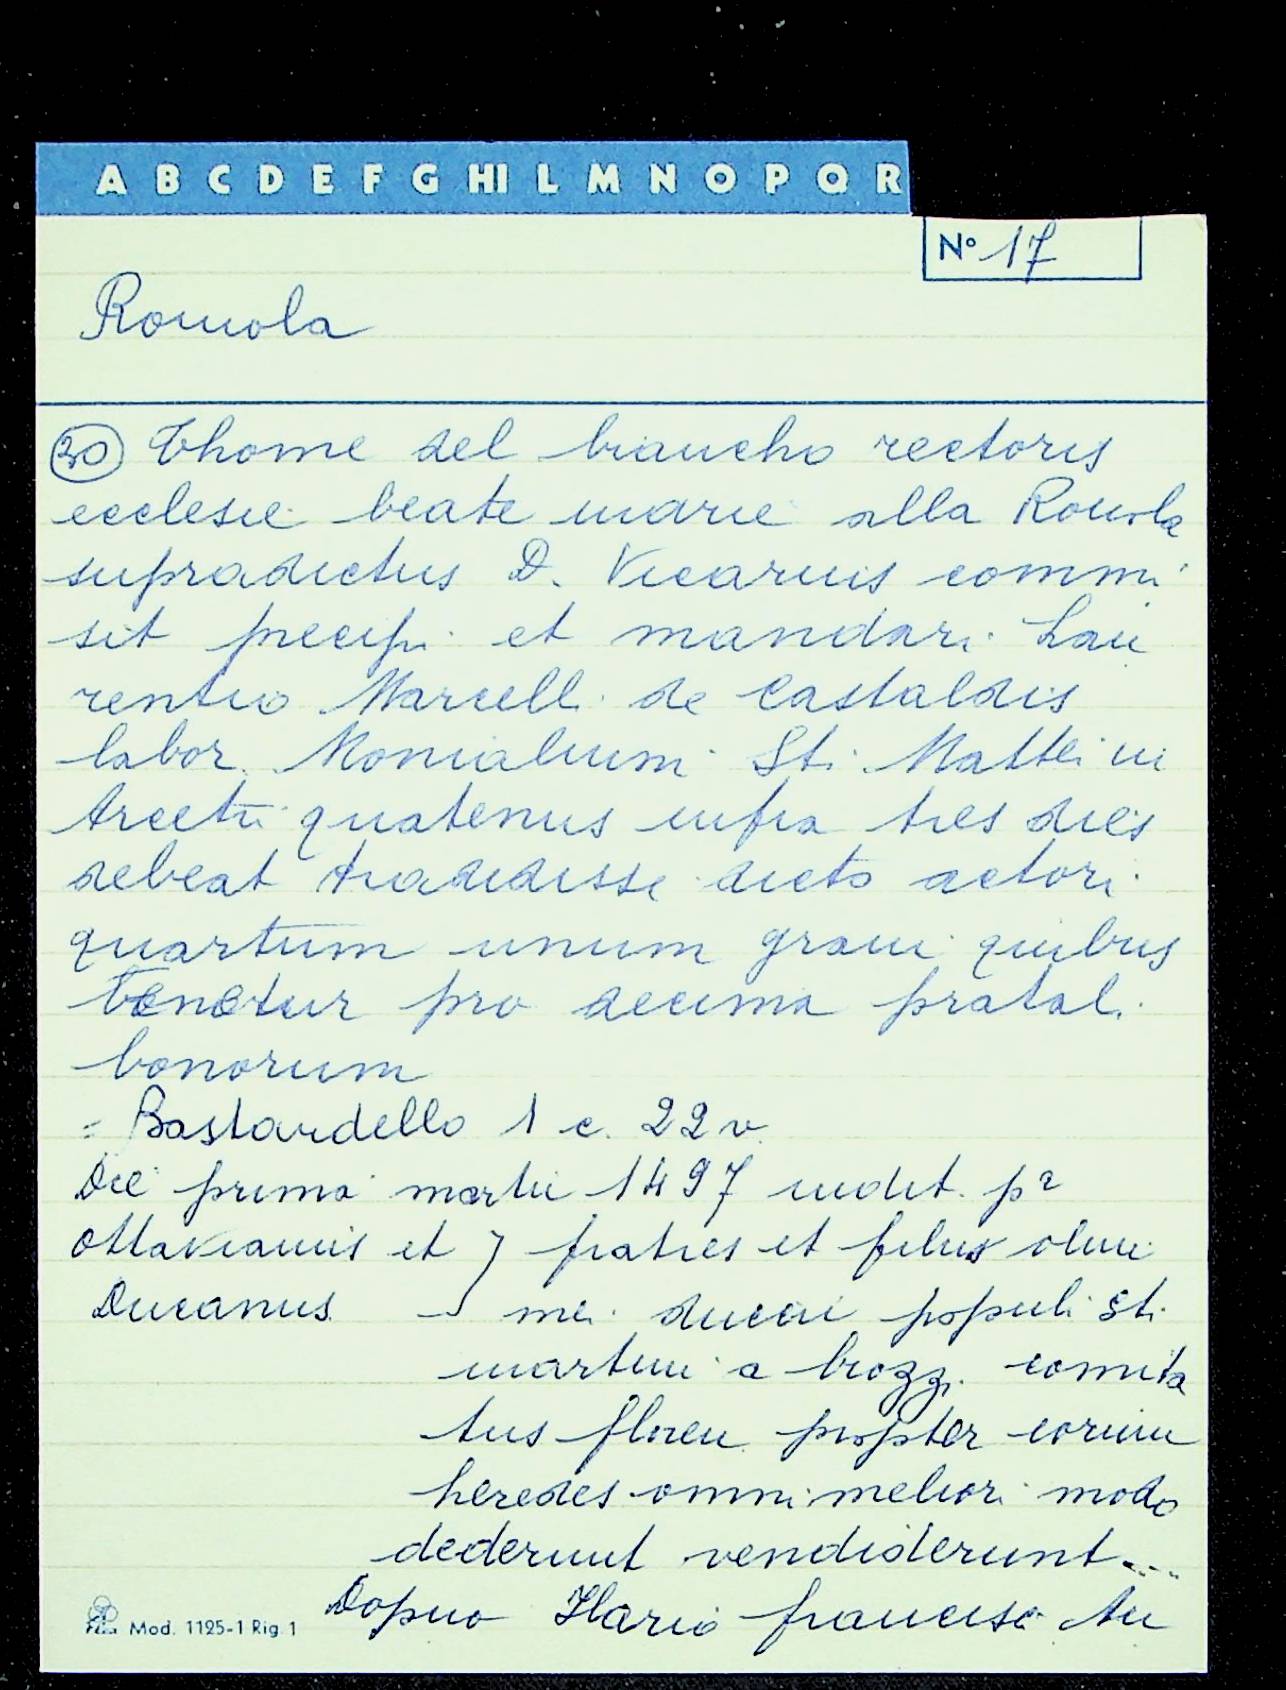 A B C D E F G HI L M N O P Q R
N° 17
Romola
30 Thome del biancho rectoris
ecclesie beate marie alla Romola
supradictus D. Vicarius commi
sit precipi et mandari Lau
rentio Marcelli de Castaldis
labor. Monialium Sti Mattei in
Arcetri quatenus infra tres dies
debeat tradidisse dicto actori
quartum unum grani quibus
tenetur pro decima pratal.
bonorum
= Bastardello 1 c. 22 v.
Die prima martii 1497 indit. pa
Ottavianus et } fratres et filius olim
Ducanus mei ducci populi Sti
martini a brozzi comita
tus floren propter eorum
heredes omni meliori modo
dederunt vendiderunt...
Dopno Ilario francisci An
Mod. 1125-1 Rig. 1